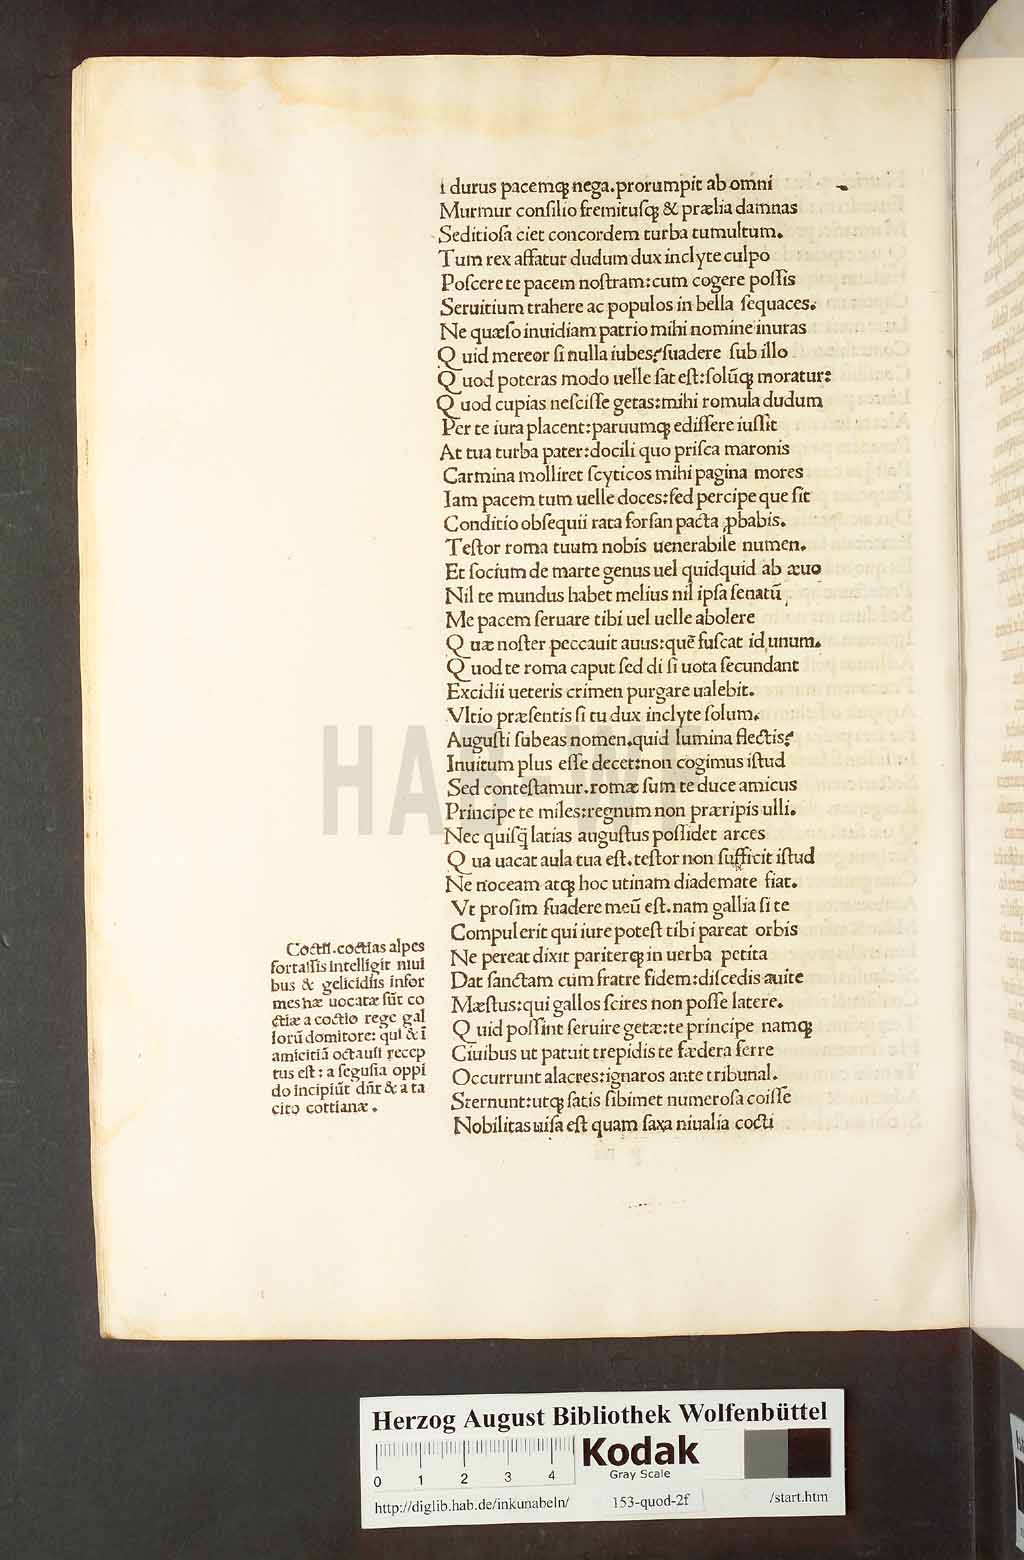 i durus pacemq; nega.prorumpit ab omni
Murmur consilio fremitusq; & prælia damnas
Seditiosa ciet concordem turba tumultum.
Tum rex affatur dudum dux inclyte culpo
Poscere te pacem nostram:cum cogere possis
Seruitium trahere ac populos in bella sequaces.
Ne quæso inuidiam patrio mihi nomine inuras
Quid mereor si nulla iubes?suadere sub illo
Quod poteras modo uelle sat est:solūq; moratur:
Quod cupias nescisse getas:mihi romula dudum
Per te iura placent:paruumq; ediscere iussit
At tua turba pater:docili quo prisca maronis
Carmina molliret scyticos mihi pagina mores
Iam pacem tum uelle doces:sed percipe que sit
Conditio obsequii rata forsan pacta ꝓbabis.
Testor roma tuum nobis uenerabile numen.
Et socium de marte genus uel quidquid ab æuo
Nil te mundus habet melius nil ipsa senatū
Me pacem seruare tibi uel uelle abolere
Quæ noster peccauit auus:quē fuscat id unum.
Quod te roma caput sed di si uota secundant
Excidii ueteris crimen purgare ualebit.
Vltio præsentis si tu dux inclyte solum.
Augusti subeas nomen.quid lumina flectis?
Inuitum plus esse decet:non cogimus istud
Sed contestamur.romæ sum te duce amicus
Principe te miles:regnum non præripis ulli.
Nec quisq̄ latias augustus possidet arces
Qua uacat aula tua est.testor non sufficit istud
Ne noceam atq; hoc utinam diademate fiat.
Vt prosim suadere meū est.nam gallia si te
Compulerit qui iure potest tibi pareat orbis
Ne pereat dixit pariterq; in uerba petita
Dat sanctam cum fratre fidem:discedis auite
Mæstus:qui gallos scires non posse latere.
Quid possint seruire getæ:te principe namq;
Ciuibus ut patuit trepidis te fædera ferre
Occurrunt alacres:ignaros ante tribunal.
Sternunt:utq; satis sibimet numerosa coisse
Nobilitas uisa est quam saxa niualia cocti
Coctii.coctias alpes
fortassis intelligit niui
bus & gelicidiis infor
mes hæ uocatæ sūt co
ctiæ a coctio rege gal
lorū domitore: qui & ī
amicitiā octauii recep
tus est: a segusia oppi
do incipiūt dn̄r & a ta
cito cottianæ.
HAB-WF
Herzog August Bibliothek Wolfenbüttel
0 1 2 3 4
Kodak
Gray Scale
http://diglib.hab.de/inkunabeln/ 153-quod-2f /start.htm